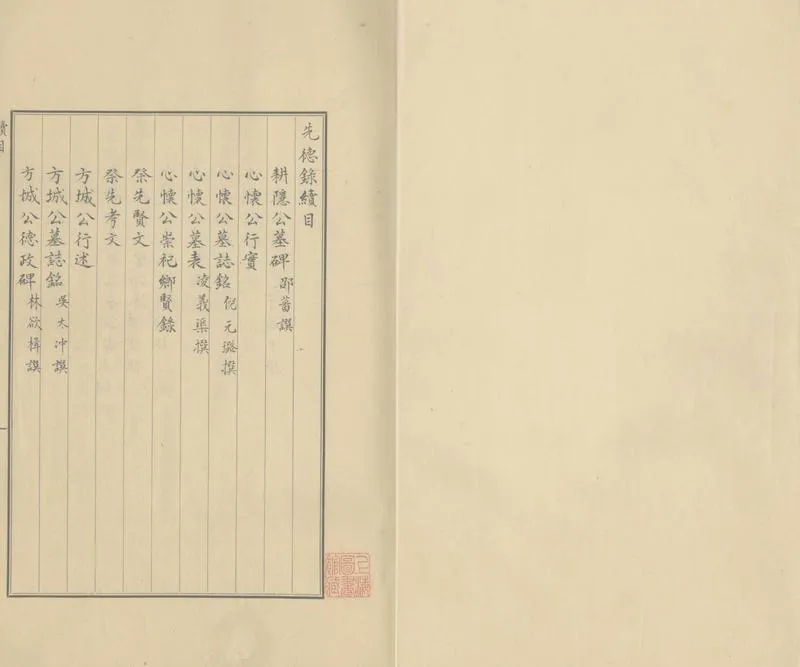 先德錄續目
耕隱公墓碑 邵蕃譔
心懷公行實
心懷公墓誌銘 倪元璐撰
心懷公墓表 凌義渠撰
心懷公崇祀鄉賢錄
祭先賢文
祭先考文
方城公行述
方城公墓誌銘 吳太冲譔
方城公德政碑 林欲楫譔
續目